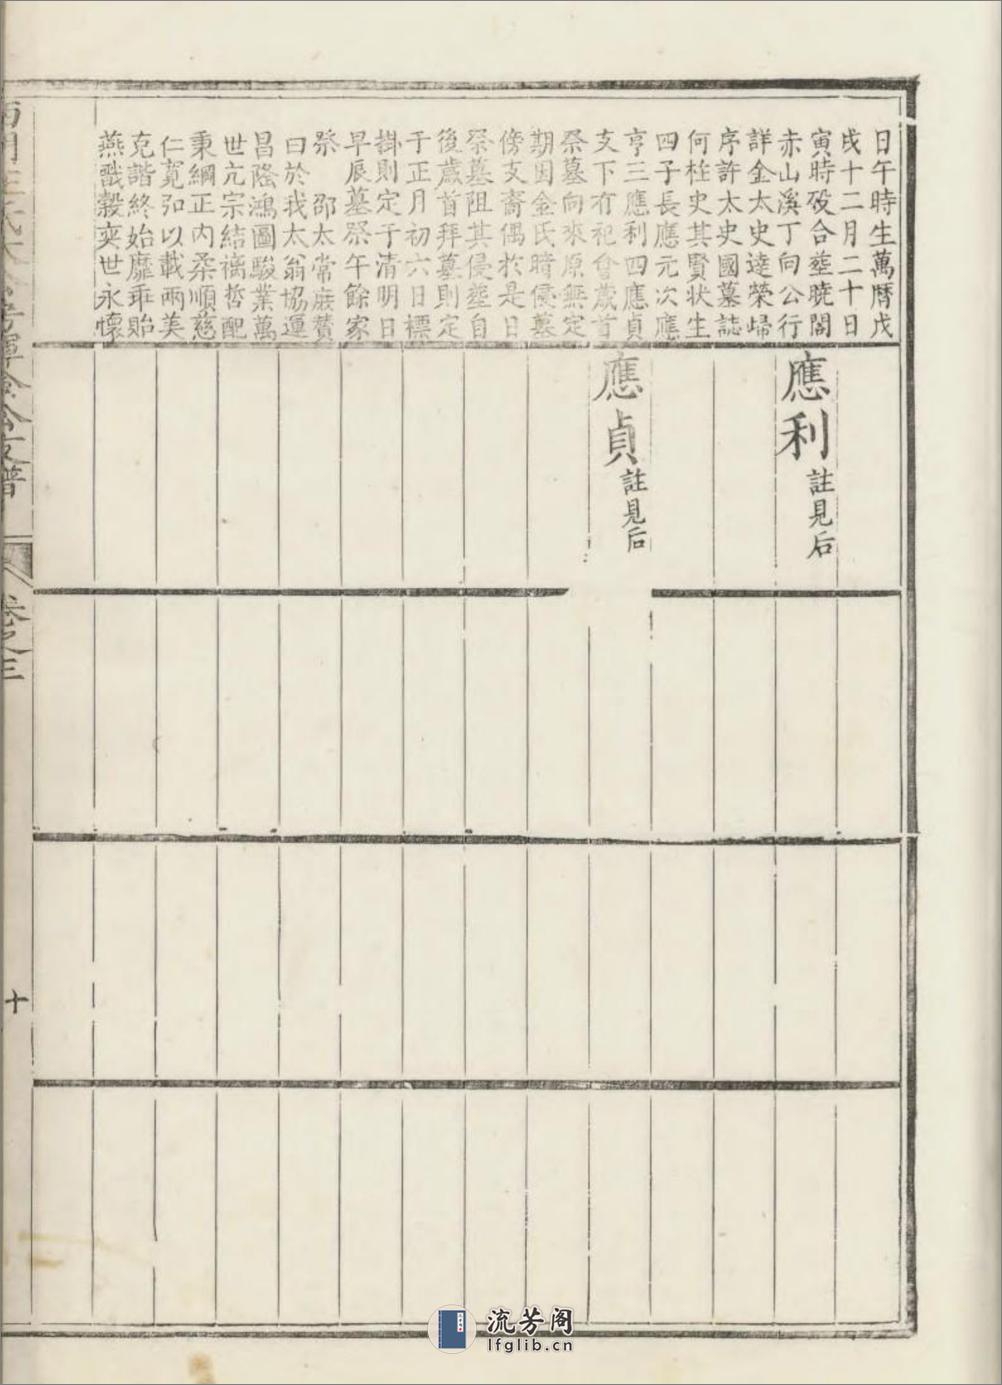 日午時生萬曆戊
戌十二月二十日
寅時歿合塟曉閣
赤山溪丁向公行
詳金太史達榮歸
序許太史國墓誌
何柱史其賢狀生
四子長應元次應
亨三應利四應貞
支下有祀會歲首
祭墓向來原無定
期因金氏暗侵墓
傍支裔偶於是日
祭墓阻其侵塟自
後歲首拜墓則定
于正月初六日標
掛則定于清明日
早辰墓祭午餘家
祭 邵太常庶贊
曰於我太翁協運
昌隆鴻圖駿業萬
世亢宗結褵哲配
秉綱正內柔順慈
仁寬弘以載兩美
克諧終始靡乖貽
燕戩穀奕世永懷
應利
註見后
應貞
註見后
公支譜
卷之三
十
流芳阁
lfglib.cn